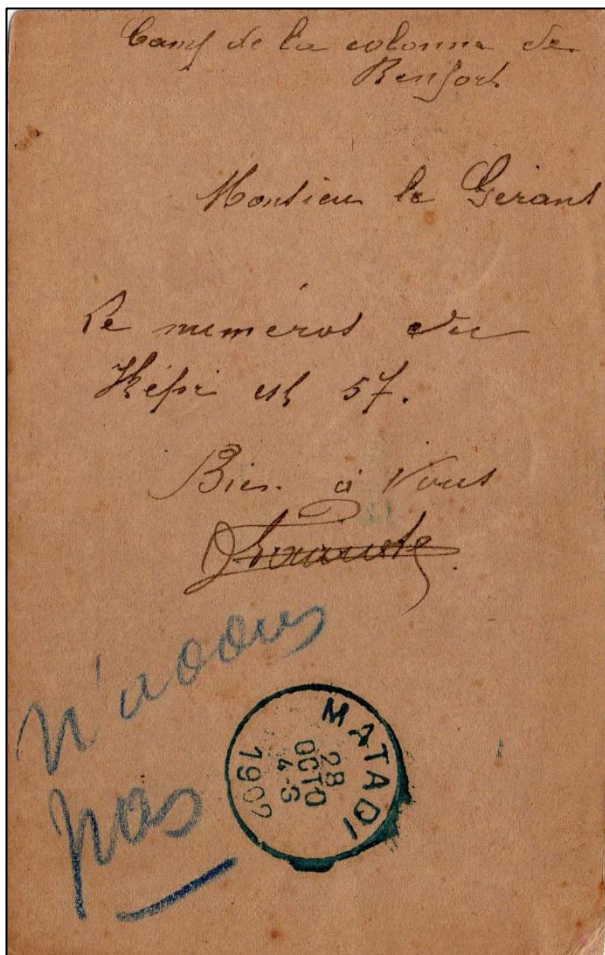 Camp de la colonne de
Renfort
Monsieur le Gérant
Le numéros du
Képi est 57.
Bien à Vous
n'avons
pas
MATADI
28
OCTO
4-S
1907